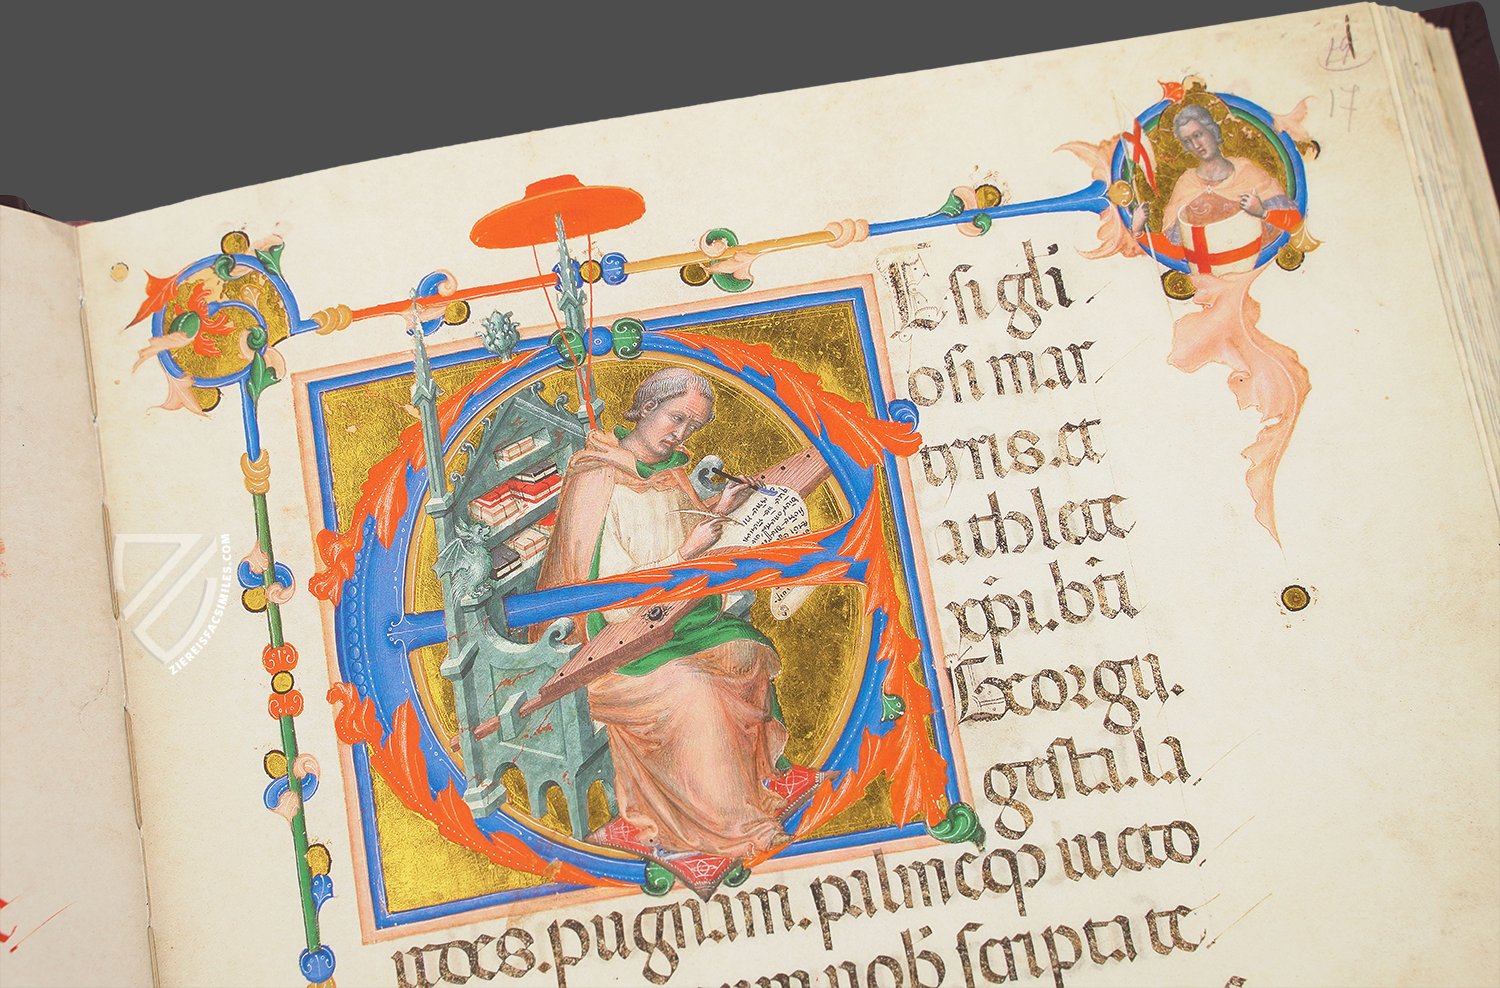 19
17
T si gl'i
osi mar
tyris. et
athlete
xp̄i. bt̄i
Georgii.
gesta. la
pugnam. uicto
nob̄ scripta te
ZIEREISFACSIMILES.COM